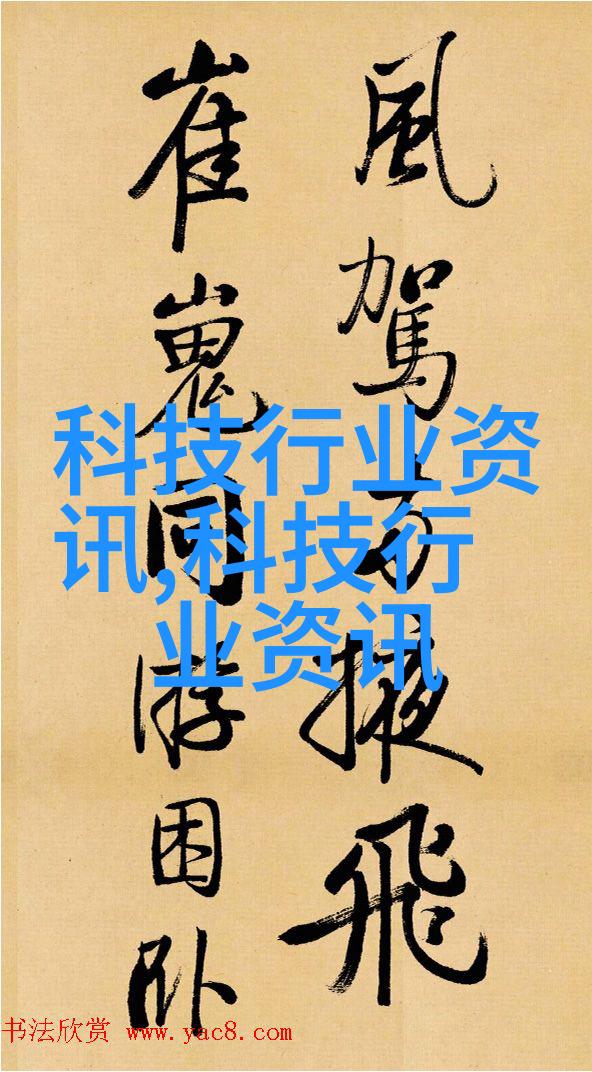 風駕方掖飛
崔嵬同游困卧
科技行业资
讯,科技行
业资讯
书法欣赏 www.yac8.com